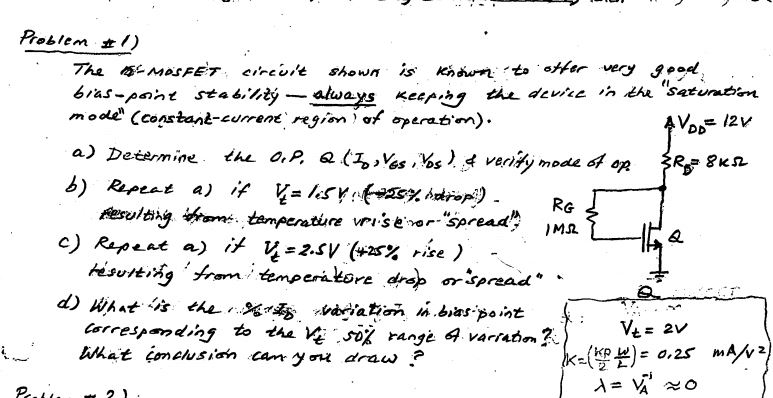 Problem #1)
The MOSFET circuit shown is known to offer very good
bias-point stability — always keeping the device in the "saturation
mode" (constant-current region of operation).
a) Determine the O.P. Q (I_D, V_GS, V_DS) & verify mode of op.
b) Repeat a) if V_t = 1.5V (-25% drop)
resulting from temperature rise or "spread"
c) Repeat a) if V_t = 2.5V (+25% rise)
resulting from temperature drop or "spread".
d) What is the % I_D variation in bias point
corresponding to the V_t 50% range of variation?
What conclusion can you draw?
V_DD = 12V
R_D = 8KΩ
R_G
1MΩ
Q
Q
V_t = 2V
K = (KP/2 W/L) = 0.25 mA/V²
λ = V_A⁻¹ ≈ 0
Problem #2)